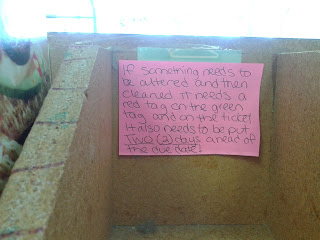 If something needs to
be altered and then
cleaned it needs a
red tag on the green
tag and on the ticket
It also needs to be put
Two (2) days ahead of
the due date!